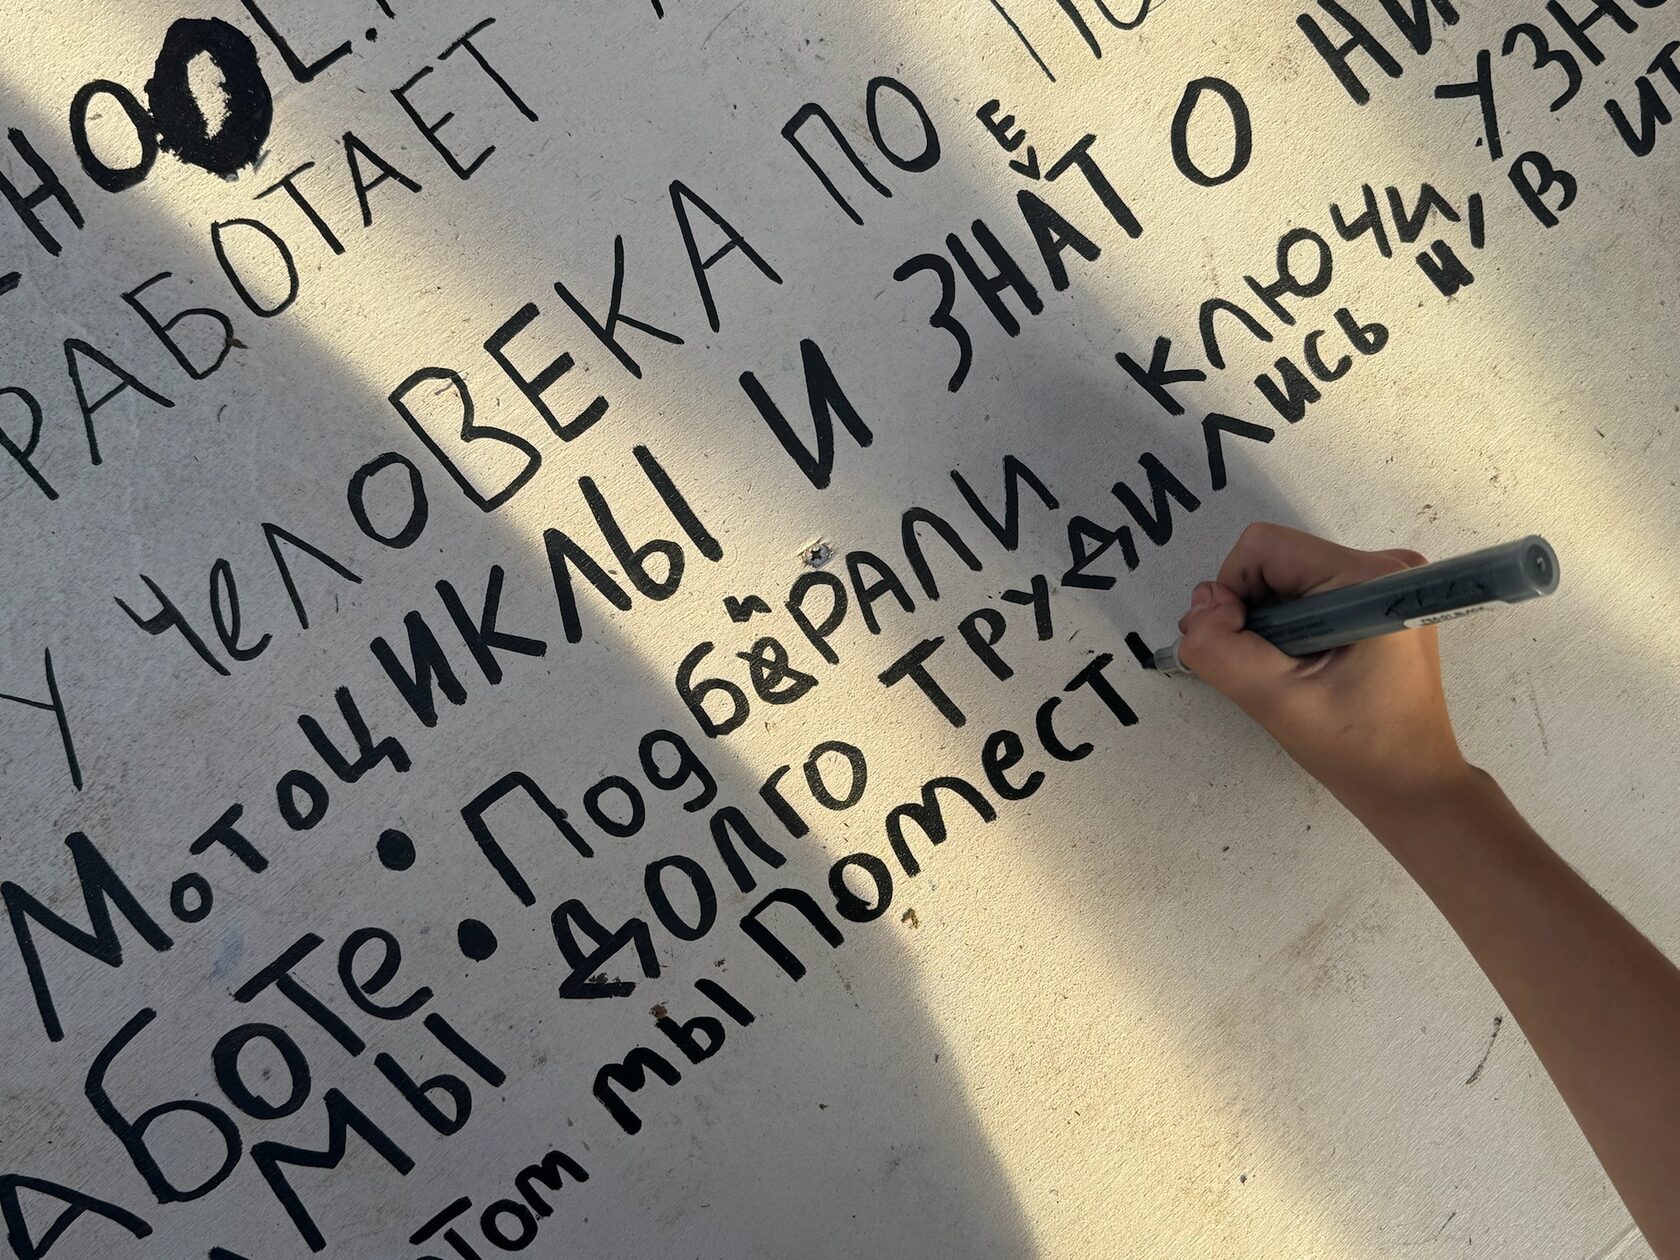 НООL.
РАБОТАЕТ
У ЧеЛОВЕКА ПО
МОТОЦИКЛЫ И ЗНАЕТ О НИ
АБОТе: ПодбИРАЛИ КЛЮЧИ, УЗН
МЫ ДОЛГО ТРУДИЛИСЬ И, В ИТ
ТОМ МЫ ПОМеСТ